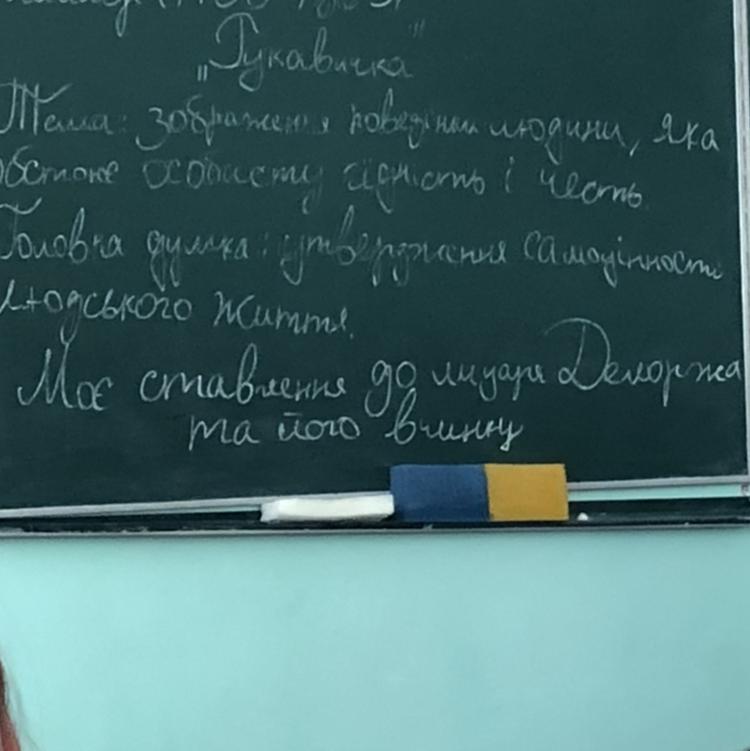 „Рукавичка"
Тема: зображення поведінки людини, яка
обстоює особисту гідність і честь.
Головна думка: утвердження самоцінності
людського життя.
Моє ставлення до лицаря Делоржа
та його вчинку